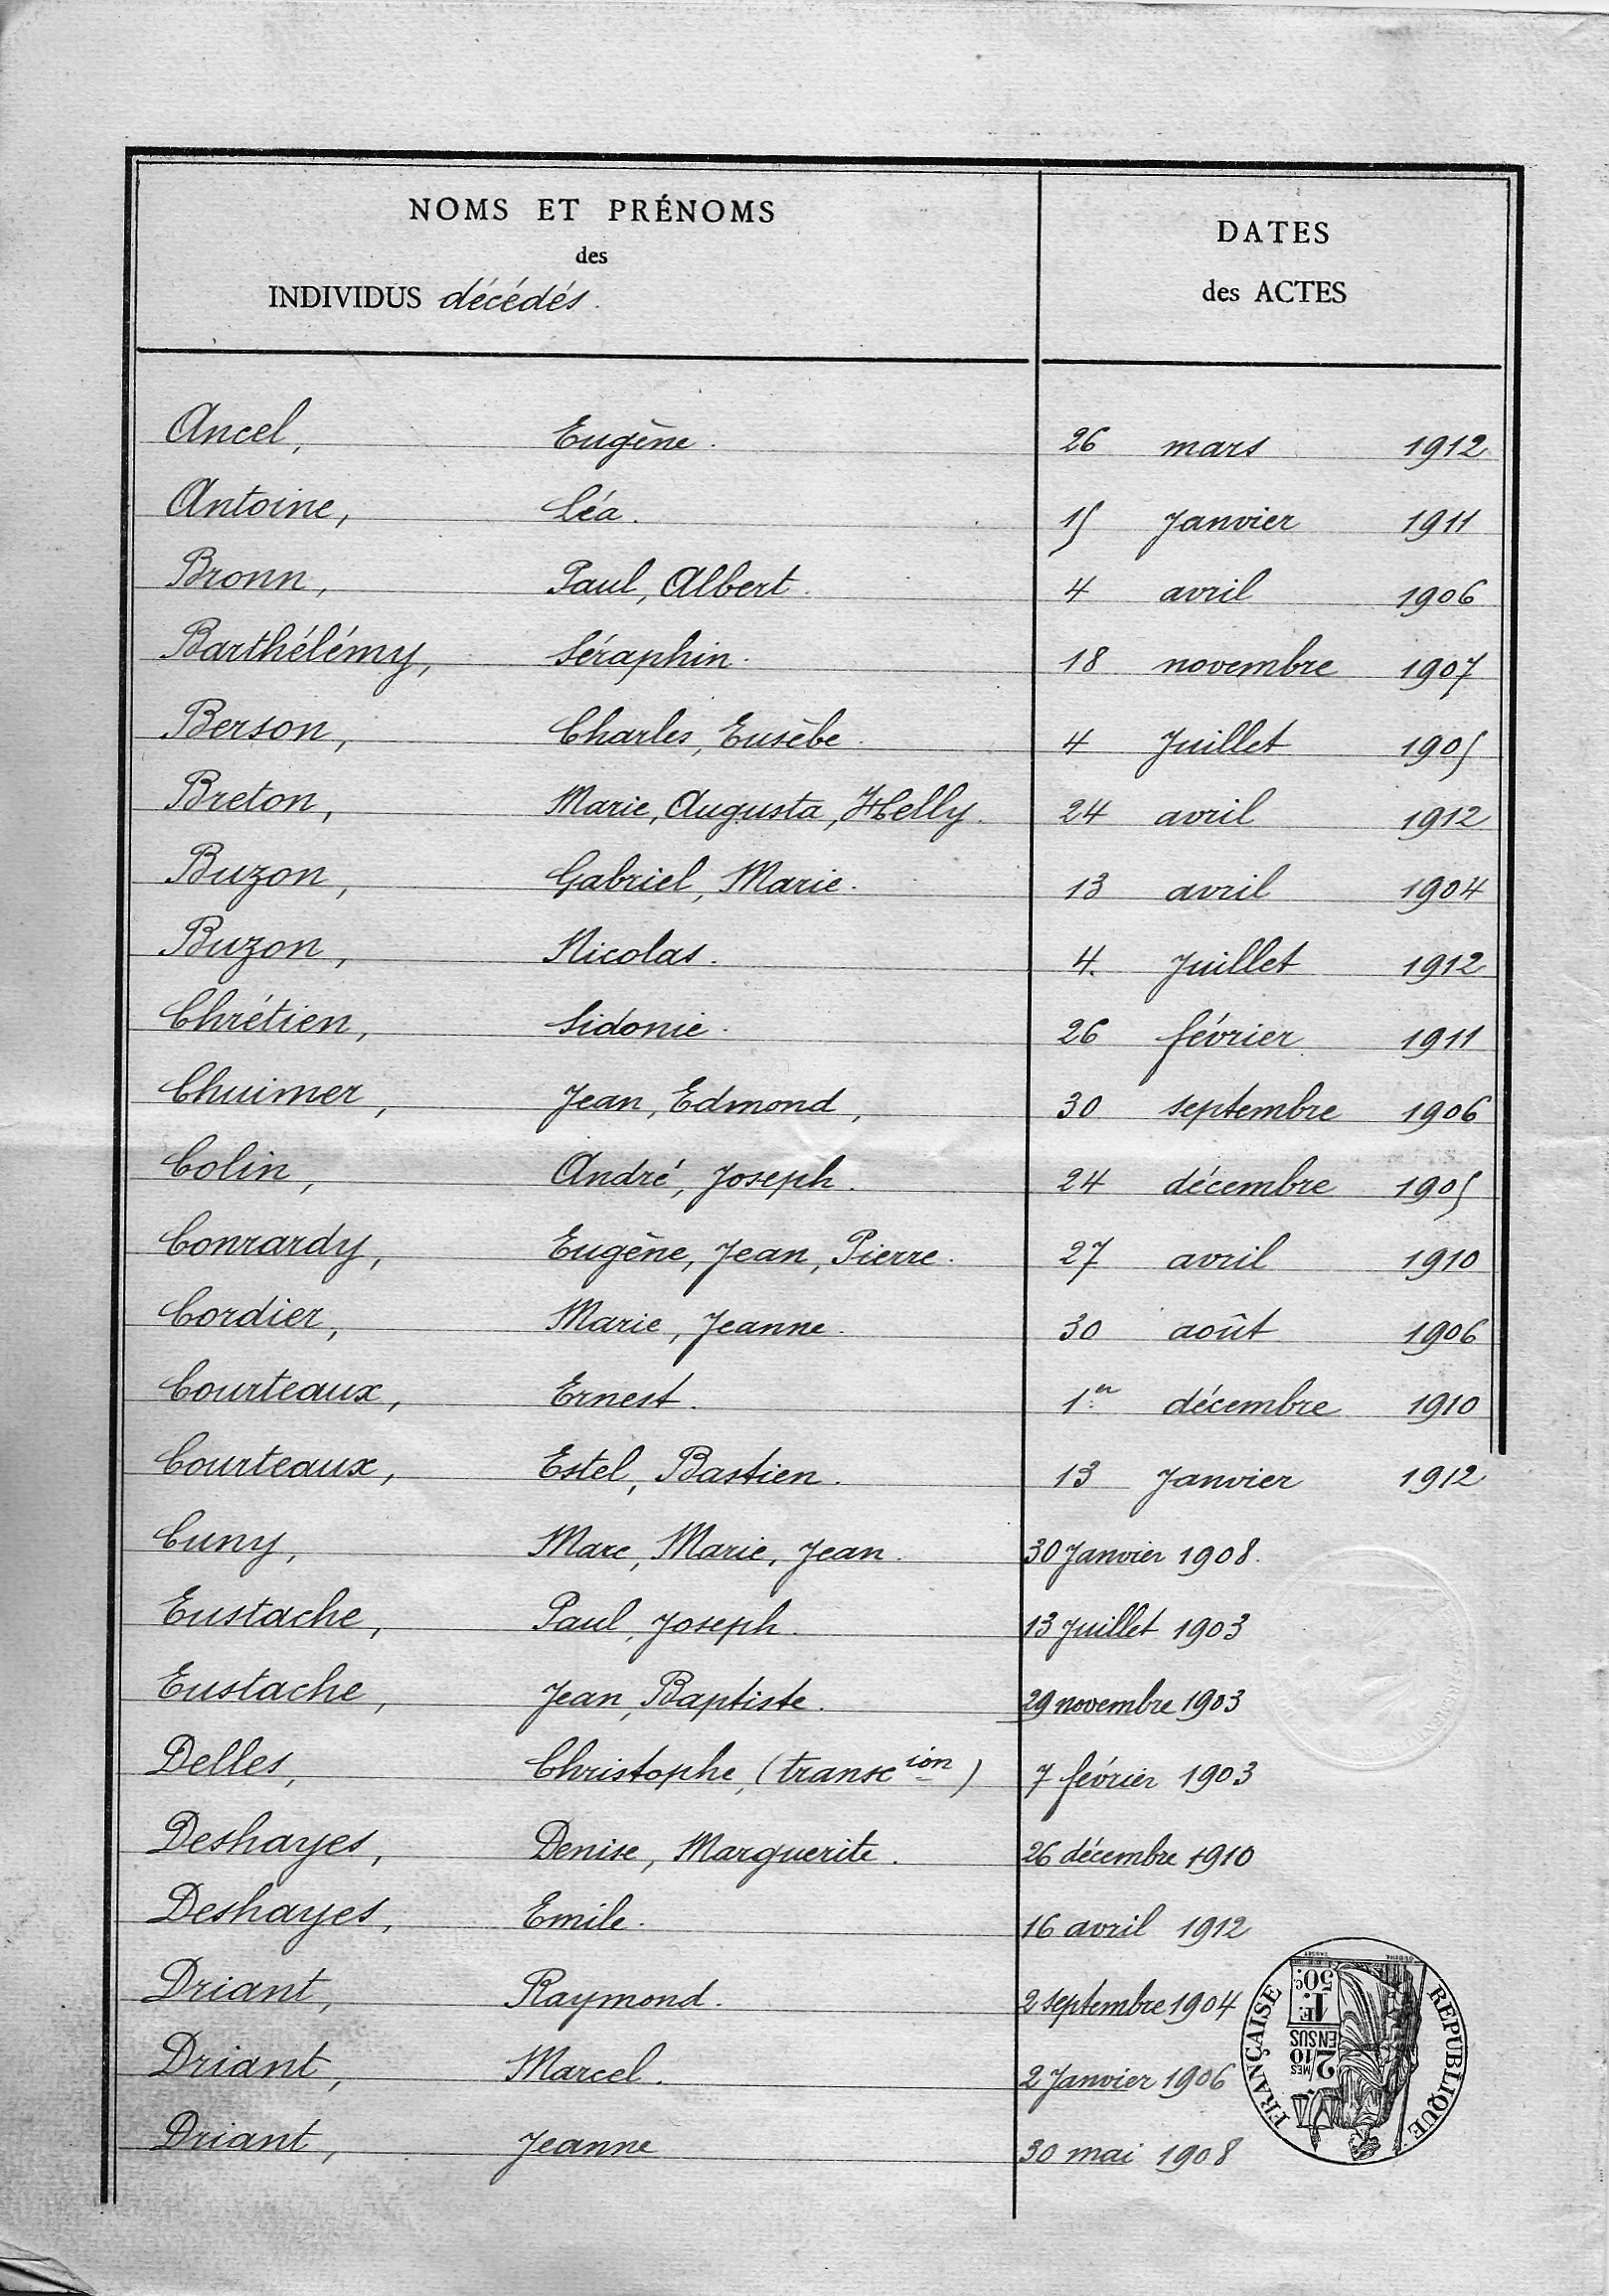 NOMS ET PRÉNOMS
des
INDIVIDUS décédés.
DATES
des ACTES
Ancel, Eugène. 26 mars 1912
Antoine, Léa. 15 Janvier 1911
Bronn, Paul, Albert. 4 avril 1906
Barthélémy, Séraphin. 18 novembre 1907
Berson, Charles, Eusèbe. 4 Juillet 1905
Breton, Marie, Augusta, Helly. 24 avril 1912
Buzon, Gabriel, Marie. 13 avril 1904
Buzon, Nicolas. 4. Juillet 1912
Chrétien, Sidonie. 26 février 1911
Chuimer, Jean, Edmond, 30 septembre 1906
Colin, André, Joseph. 24 décembre 1905
Conrardy, Eugène, Jean, Pierre. 27 avril 1910
Cordier, Marie, Jeanne. 30 août 1906
Courteaux, Ernest. 1er décembre 1910
Courteaux, Estel, Bastien. 13 Janvier 1912
Cuny, Marc, Marie, Jean. 30 Janvier 1908.
Eustache, Paul, Joseph. 13 Juillet 1903
Eustache, Jean, Baptiste. 29 novembre 1903
Delles, Christophe, (transcion) 7 février 1903
Deshayes, Denise, Marguerite. 26 décembre 1910
Deshayes, Emile. 16 avril 1912
Driant, Raymond. 2 septembre 1904
Driant, Marcel. 2 Janvier 1906
Driant, Jeanne 30 mai 1908
RÉPUBLIQUE FRANÇAISE
2/10 MES
EN SUS
1F.
50c.